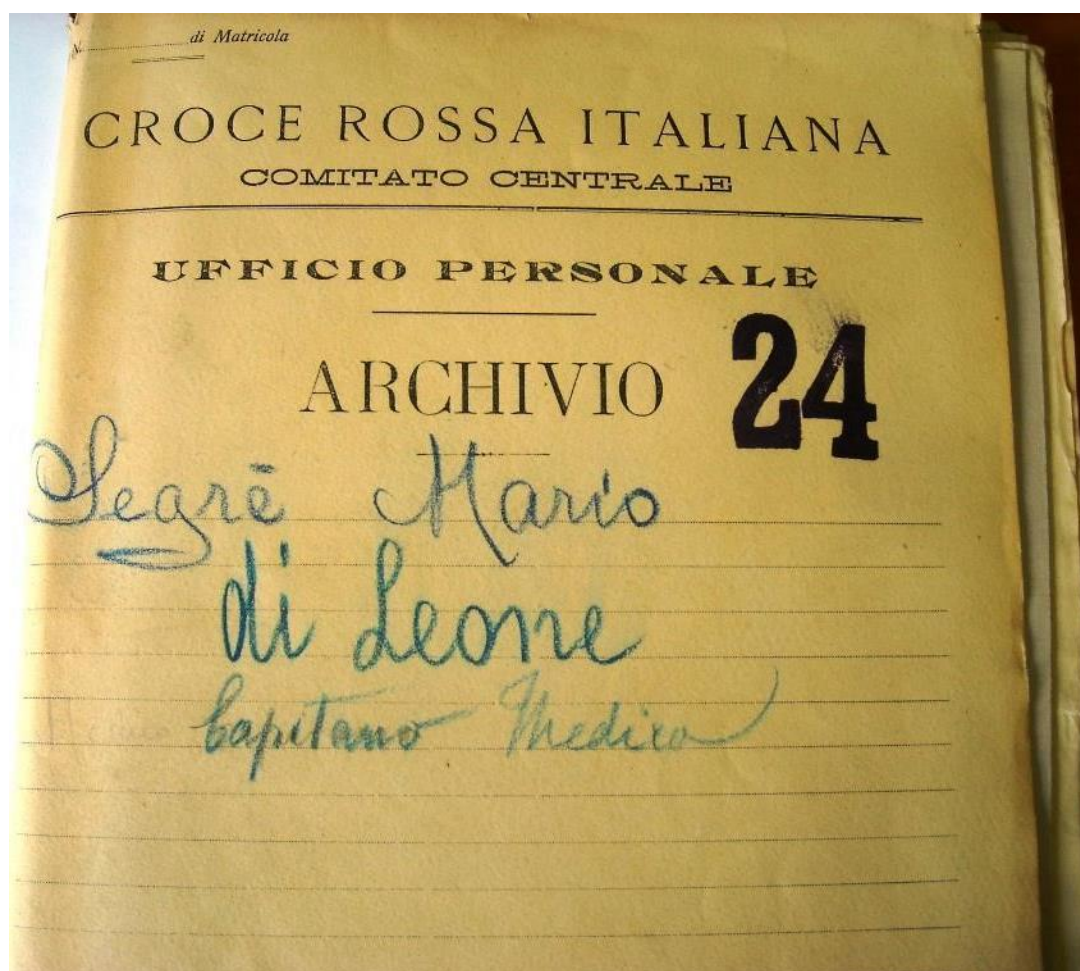 N. di Matricola
CROCE ROSSA ITALIANA
COMITATO CENTRALE
UFFICIO PERSONALE
ARCHIVIO 24
Segrè Mario
di Leone
Capitano Medico